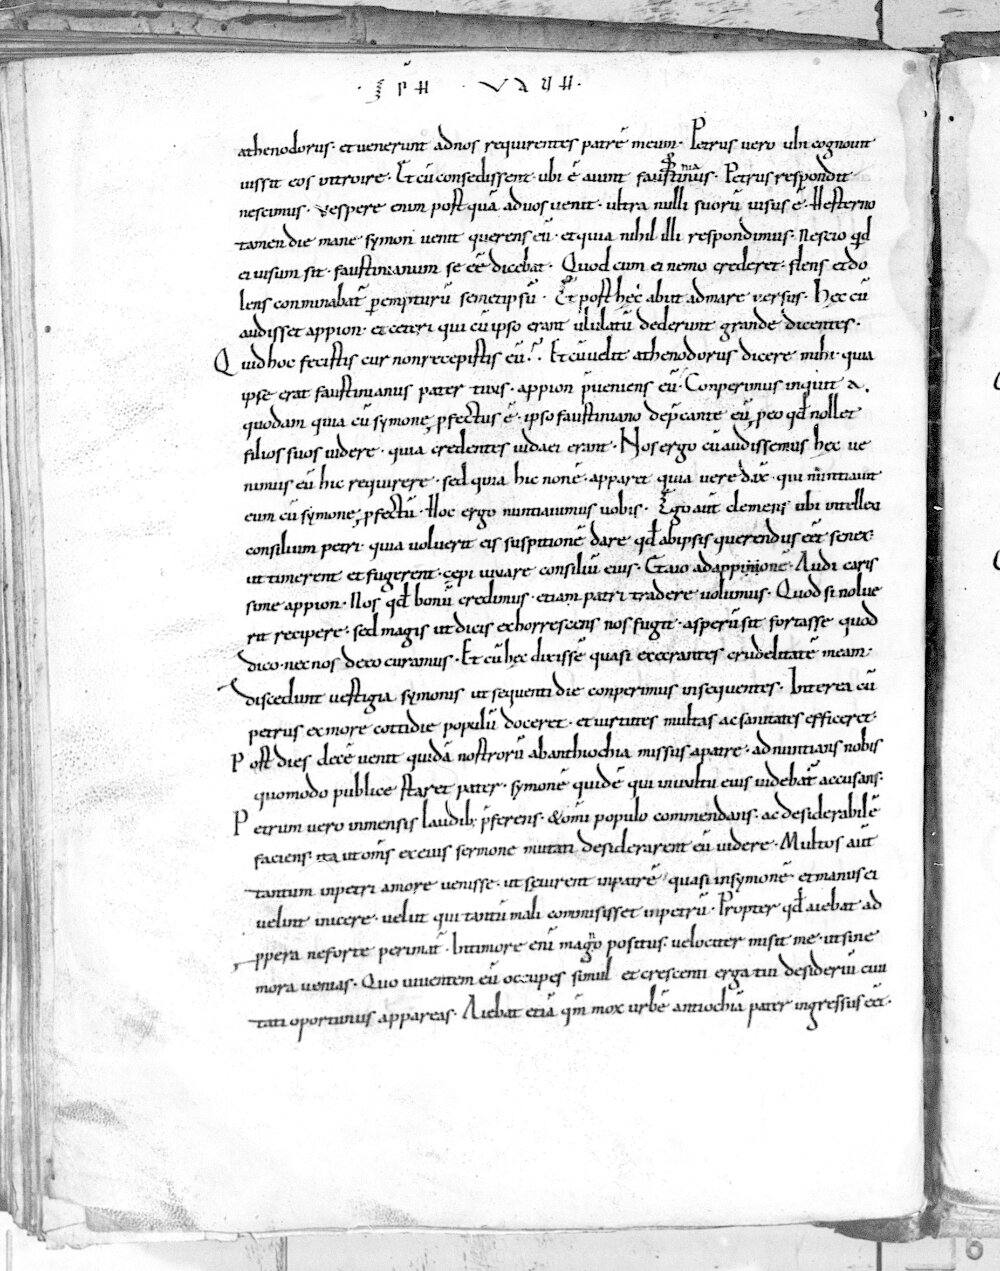 athenodorus· et venerunt ad nos requirentes patrē meum· Petrus vero ubi cognovit
iussit eos introire· Et cū consedissent· ubi ē aiunt faustinianus· Petrus respondit
nescimus· vespere enim post quā ad vos venit· ultra nulli suorū visus ē· Hesterno
tamen die mane symon venit querens eū· et quia nihil illi respondimus· nescio qd
ei visum sit· faustinianum se eē dicebat· Quod cum ei nemo crederet· flens et do
lens conminabat̄ pempturū semetipsū· Et post hęc abiit ad mare versus· Hęc cū
audisset appion· et ceteri qui cū ipso erant ululatū dederunt grandē dicentes·
Quid hoc fecistis cur non recepistis eū· Et cū velit athenodorus dicere mihi· quia
ipse erat faustinianus pater tuus· appion p̄veniens eū· Conperimus inquit a
quodam quia cū symone pfectus ē· ipso faustiniano dep̄cante eū, peo qđ nollet
filios suos videre· quia credentes iudaei erant· Nos ergo cū audissemus hęc ve
nimus eū hic requirere· sed quia hic non ē· apparet quia vere dix̄· qui nuntiavit
eum cū symone pfectū· Hoc ergo nuntiavimus vobis· Ego aut̄ clemens ubi intellexi
consilium petri· quia voluerit eis suspitionē dare qđ ab ipsis querendus eēt senex·
ut timerent et fugerent· cepi iuvare consiliū eius· Et aio ad appionē· Audi caris
sime appion· Nos qđ bonū credimus· etiam patri tradere volumus· Quod si nolue
rit recipere· sed magis ut dicis exhorrescens nos fugit· asperū sit fortasse quod
dico· nec nos de eo curamus· Et cū hęc dixissē quasi execrantes crudelitatē meam·
discedunt vestigia symonis ut sequenti die conperimus insequentes· Interea cū
petrus ex more cottidie populū doceret· et virtutes multas ac sanitates efficeret·
Post dies decē venit quidā nostrorū ab anthiochia missus a patre· adnuntians nobis
quomodo publice staret pater· symonē quidē qui in vultu eius videbat̄ accusans·
Petrum vero inmensis laudib; p̄ferens· & om̄i populo commendans· ac desiderabilē
faciens· ita ut om̄s ex eius sermone mutati desiderarent eū videre· Multos aut̄
tantum in petri amore venisse· ut sevirent in patrē quasi in symonē et manus ei
velint inicere· velut qui tantū mali commisisset in petrū· Propter qđ aiebat ad
ppera ne forte perimat̄· In timore enī magno positus· velociter misit me· ut sine
mora venias· Quo viventem eū occupes simul et crescenti erga tui desideriū civi
tati oportunus appareas· Aiebat etiā qm̄ mox urbē antiochiā pater ingressus eēt·